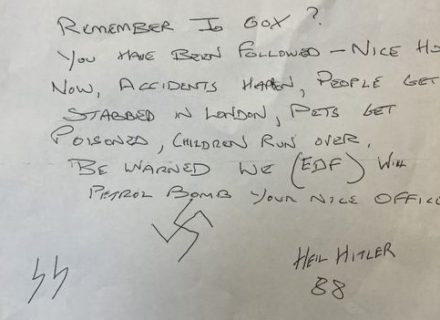 REMEMBER JO COX ?
YOU HAVE BEEN FOLLOWED - NICE
NOW, ACCIDENTS HAPPEN, PEOPLE GET
STABBED IN LONDON, PETS GET
POISONED, CHILDREN RUN OVER.
BE WARNED WE (EDF) WILL
PETROL BOMB YOUR NICE OFFICE
HEIL HITLER
SS
88